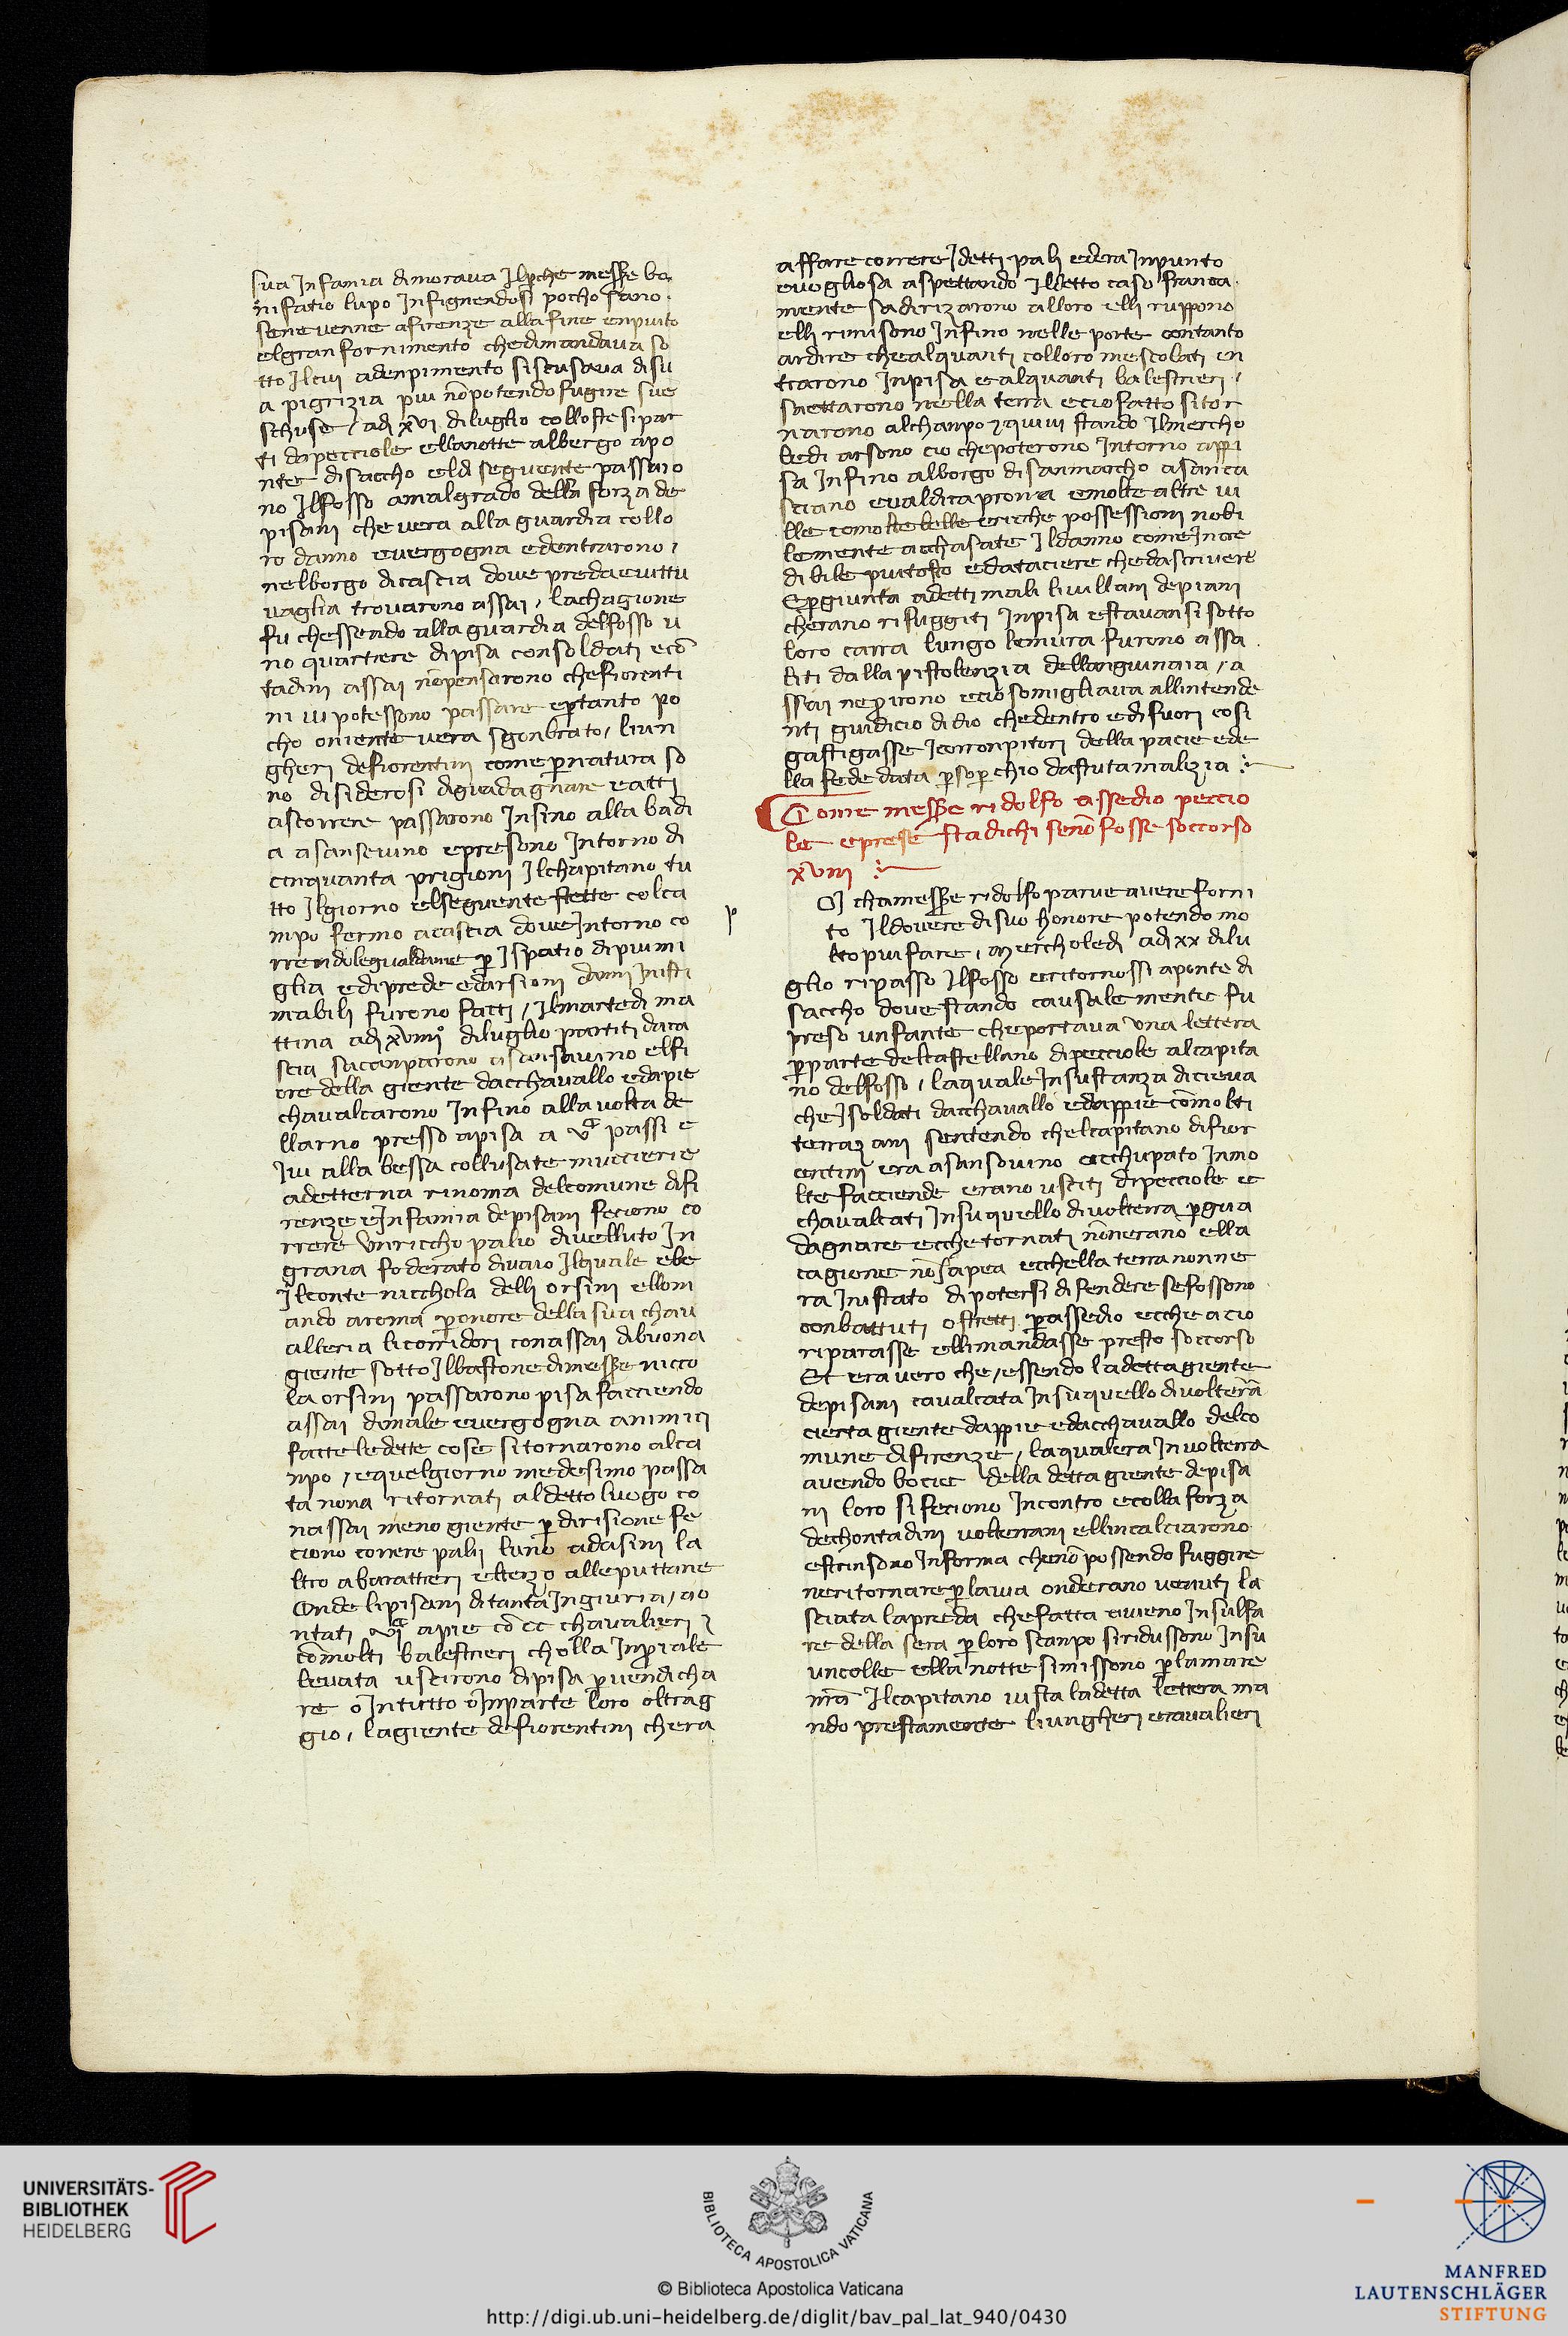 sua Infamia dimorava Ilpche messe bo
nifatio lupo Infignendosi pocho sano
sene venne afirenze alla fine enpiuto
elgran fornimento chedimandava so
tto Ilcui adenpimento siscusava di su
a pigrizia piu nōpotendo fugire sue
schuse / adj xvi diluglio colloste sipar
ti dapecciole ellanotte albergo apo
nte disaccho eldi seguente passaro
no Ilfosso amalgrado della forza de
pisani chevera alla guardia collo
ro danno evergogna edentrarono /
nelborgo dicascia dove preda evittu
vaglia trovarono assai / lachagione
fu chessendo alla guardia delfosso u
no quartiere dipisa consoldati ecō
tadini assai nōpensarono chefiorenti
ni vi potessono passare eptanto po
cho oniente vera sgonbrato / liun
gheri defiorentini come pnatura so
no disiderosi diguadagnare eatti
ascorrere passarono Insino alla badi
a asansevino epresono Intorno di
cinquanta prigioni Ilchapitano tu
tto Ilgiorno elseguente stette colca
mpo fermo acascia doveIntorno co
rrendolegualdane p Ispatio dipiumi
glia edi prede edarsioni danni Inisti
mabili furono fatti / Ilmartedi ma
ttina adj xviiij° diluglio partiti daca
scia sacanparono asansavino elfi
ore della giente dacchavallo edapie
chavalcarono Infino alla volta de
llarno presso apisa a v̄ passi e
Ivi alla bessa collusate muccierie
adetterna rinoma delcomune difi
renze eInfamia depisani feciono co
rrere Unriccho palio divelluto In
grana foderato divaio Ilquale ebe
Ilconte nicchola delli orsini ellom
ando aroma ponore della sua chav
alleria licorridori conassai dibuona
giente sotto Ilbastone dimesse nicco
la orsini passarono pisa facciendo
assai dimale evergogna animici
fatte ledette cose sitornarono alca
npo / equelgiorno medesimo passa
ta nona ritornati aldetto luogo co
nassai meno giente p dirisione fe
ciono correre palij luno adasini la
ltro abarattieri elterzo alleputtane
Onde lipisani ditanta Ingiuria / ao
ntati vi apie cō cc chavalieri 7
cōmolti balestrieri cholla Inpiale
levata uscirono dipisa pvendicha
re o Intutto o Inparte loro oltrag
gio / lagiente defiorentini chera
p
affare correre Idetti palij edera Inpunto
evogliosa aspettando Ildetto caso franca
mente sadirizarono alloro elli ruppono
elli rimisono Infino nelle porte contanto
ardire chealquanti colloro mescolati en
trarono Inpisa ealquanti balestrieri /
saettarono nella terra ecio fatto sitor
narono alchanpo 7 quivi stando Ilmercho
ledi arsono cio chepoterono Intorno appi
sa Infino alborgo disanmarcho asanca
sciano evaldicaprona emolte altre vi
lle comolte belle ericche possessioni nobi
lemente acchasate Ildanno comeIncre
dibile piutosto edataciere chedascrivere
Epgiunta adetti mali livillani depiani
cherano rifuggiti Inpisa estavansi sotto
loro carra lungo lemura furono assa
liti dalla pistolenzia dellanguinaia / a
ssai nepirono ecio somigliava allintende
nti giudicio didio chedentro edifuori cosi
gastigasse Icorronpitori della pacie ede
lla fede data psopchio dastuta malizia
Come messe ridolfo assedio peccio
le eprese stadichi senō fosse soccorso
xviii
OI chamesse ridolfo parve avere forni
to Ildovere disuo honore potendo mo
lto piu fare / mercholedi adj xx dilu
glio ripasso Ilfosso eritornossi aponte di
saccho dove stando causalemente fu
preso unfante cheportava una lettera
pparte delcastellano dipecciole alcapita
no delfosso / laquale Insustanza diceva
che Isoldati dacchavallo edappie cōmolti
terrazani sentendo chelcapitano difior
entini era asansovino occhupato Inmo
lte facciende erano usciti dipecciole e
chavalcati Insuquello divolterra pgua
dagnare ecche tornati nōnerano ella
cagione nōsapea ecchella terra nonne
ra Inistato dipotersi difendere sefossono
conbattuti ostretti passedio ecche acio
riparasse ellimandasse presto soccorso
Et era vero che / essendo ladetta giente
depisani cavalcata Insuquello divolterra
cierta giente dappie edacchavallo delco
mune difirenze / laqualera Involterra
avendo bocie della detta giente depisa
ni loro sifeciono Incontro ecolla forza
dechontadini volterrani ellincalciarono
estrinsono Informa chenō possendo fuggire
neritornare plavia onderano venuti la
sciata lapreda chefatta avieno Insulfa
re della sera ploro scanpo siridussono Insu
uncolle ella notte simissono plamare
mā Ilcapitano vista ladetta lettera ma
ndo prestamente liungheri ecavalieri
UNIVERSITÄTS-
BIBLIOTHEK
HEIDELBERG
BIBLIOTECA APOSTOLICA VATICANA
© Biblioteca Apostolica Vaticana
http://digi.ub.uni-heidelberg.de/diglit/bav_pal_lat_940/0430
MANFRED
LAUTENSCHLÄGER
STIFTUNG